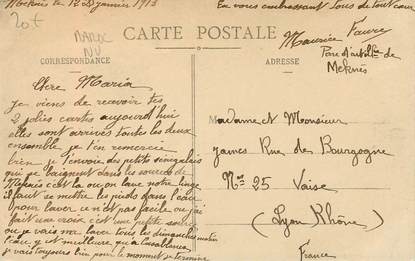 Meknès le 12 janvier 1913
En vous embrassant tous de tout cœur
Maurice Faure
20f
MAROC
NV
CARTE POSTALE
CORRESPONDANCE
ADRESSE
Parc d'artillerie de
Meknès
Chère Maria
je viens de recevoir tes
2 jolies cartes aujourd'hui
elles sont arrivés toutes les deux
ensemble je t'en remercie
bien je t'envoie des petits sénégalais
qui se baignent dans les sources de
Meknès c'est la ou on lave notre linge
il faut se mettre les pieds dans l'eau
pour laver ce n'est pas facile ou j'ai
fait une croix c'est une petite
ou je vais me laver tous les dimanches matin
l'eau y est meilleure qu'a Casablanca
je vais toujours bien pour le moment je termine
Madame et Monsieur
James Rue de Bourgogne
No 25 Vaise
(Lyon Rhône)
France